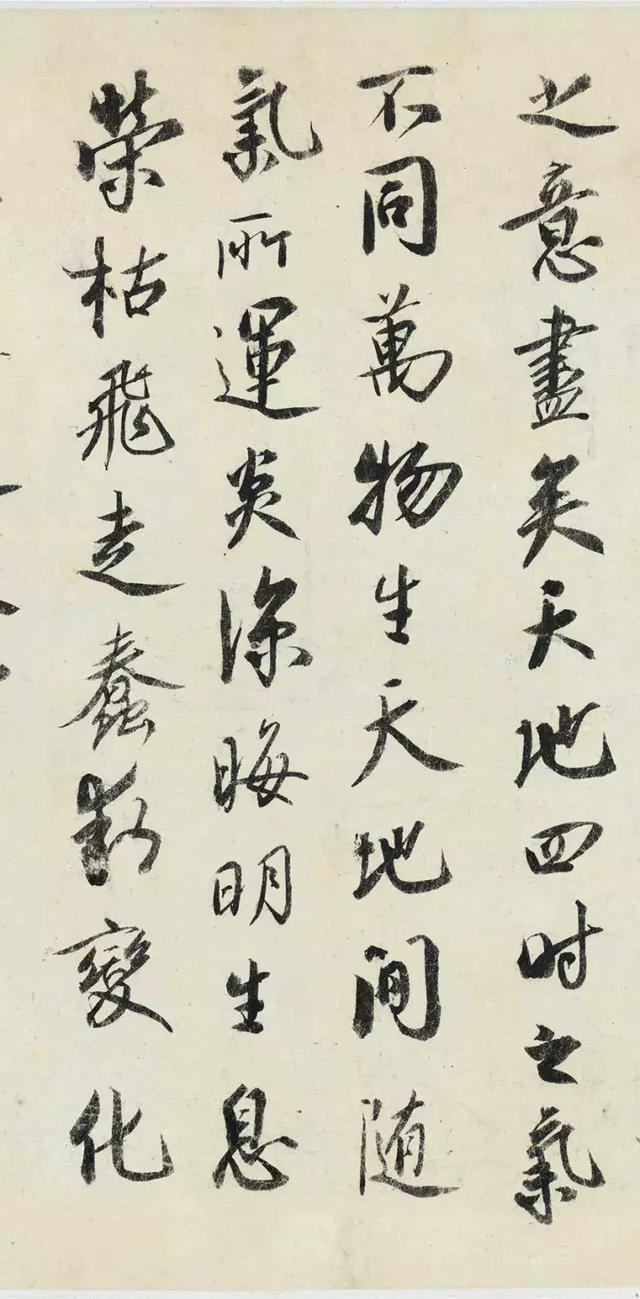 之意盡矣天地四时之氣
不同萬物生天地間隨
氣所運炎涼晦明生息
榮枯飛走蠢動變化